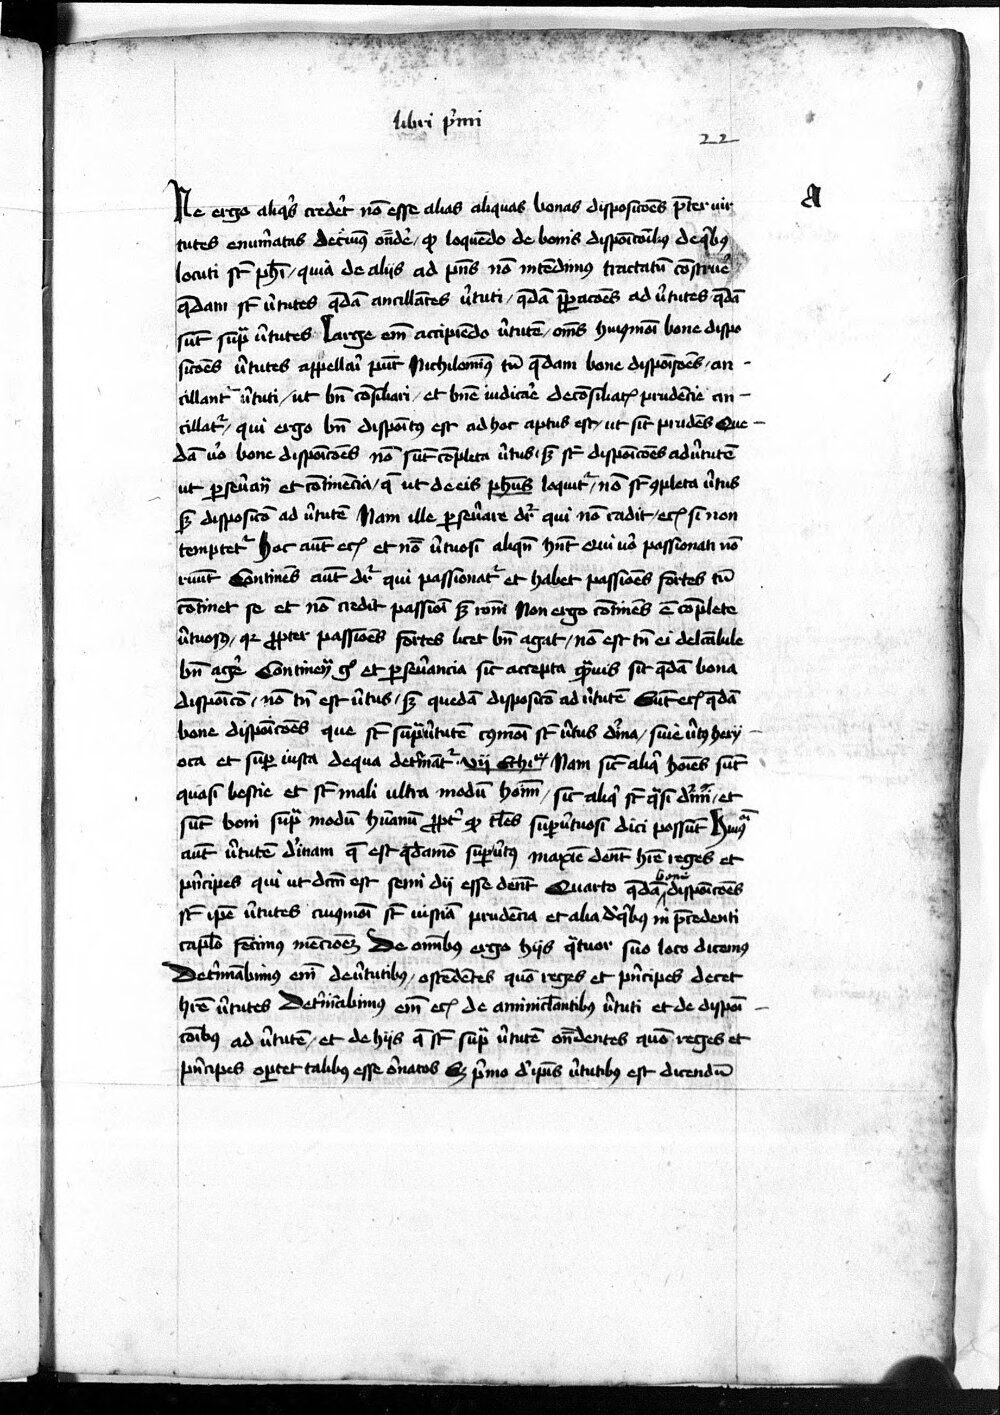 libri p̄mi
22
A
Ne ergo aliq's creder' nō esse alias aliquas bonas disposicōēs p̄ter vir
tutes enum'atas decim9 oñde' / qp loquēdo de bonis dispoīcoībus de q'bus
locuti st' phī / quia de alijs ad p̄ns nō intēdim9 tractatū cōstrue'
q̄dam st' v'tutes q̄dā ancillātes v'tuti / q̄dā p̄p̄acōēs ad v'tutes q̄dā
sūt sup̄ v'tutes Large em̄ accipiēdo v'tutē / om̄s huiqmōi bone dispo
sicōēs v'tutes appellari pn̄t Nichilomin9 tn̄ q̄dam bone dispoīcōēs / an -
cillant' v'tuti / ut bn̄ cōsiliari / et bn̄e iudicar'e de cōsiliat' prudēcie an -
cillat' / qui ergo bn̄ dispoīt9 est ad hoc aptus est / ut sit prudēs Que -
dā v'o bone dispoīcōēs nō sūt cōpleta v'tus sʒ st' dispoīcōēs ad v'tutē
ut p̱sev'ān et cōtinēcia / q̄ ut de eis phus loquit' / nō st' 9pleta v'tus
sʒ disposicō ad v'tutē Nam ille p̱sev'are dr̄ qui nō cadit / ecꝫ si non
temptet' Hoc aut ecꝫ et nō v'tuosi aliqn̄ hn̄t Qui v'o passionati nō
ruūt Continēs aūt dr̄ qui passionat' et habet passiōēs fortes tn̄
cōtinet se et nō credit passiōi sʒ rōni Non ergo cōtinēs ē cōplete
v'tuos9 / qr p̱pter passiōēs fortes licet bn̄ agat / nō est tn̄ ei delc̄abile
bn̄ age' Continen' g° et p̱sev'ancia sic accepta q̄mvis sit q̄dā bona
dispoīcō / nō tn̄ est v'tus / sʒ quedā disposicō ad v'tutē Sūt ecꝫ q̄dā
bone dispoīcōēs que st' sup̄ v'tutē c9mōi st' v'tus dīna / sive v't9 hery -
oca et sup iusta de qua det'mīat' vij Ethicꝝ Nam sic aliq' hoīes sūt
quasi bestie et st' mali ultra modū hoīm / sic aliq' st' q̄si dīni / et
sūt boni sup̄ modū hūanū p̱pt' qp tl̄es sup v'tuosi dici possūt Hui9
aūt v'tutē dīnam q̄ est q̄damō sup v't9 maxīe debēt hr̄e reges et
p̄ncipes qui ut dcm̄ est semi dij esse debēt Quarto q̄dā bone dispoīcōēs
st' ipē v'tutes cuiqmōi st' iusticia prudēcia et alia d' q'bus in p̄cedenti
caplō fecim9 mēcioēꝫ De om̄ibus ergo hijs q̄tuor suo loco dicem9
Det'mīabimus em̄ de v'tutibus / ostēdētes quō reges et p̄ncipes decet
hr̄e v'tutes Det'mīabimus em̄ ecꝫ de amminiclantibus v'tuti et de dispoī -
cōībus ad v'tutē / et de hijs q̄ st' sup̄ v'tutē oñdentes quō reges et
p̄ncipes oportet talibus esse ornatos Sꝫ p̄mo d' ip̄is v'tutibus est dicendū